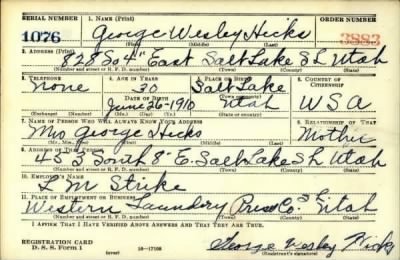 SERIAL NUMBER 1. NAME (Print) ORDER NUMBER
1076 George Wesley Hicks 3883
(First) (Middle) (Last)
2. ADDRESS (Print)
828 So 4" East Salt Lake S L Utah
(Number and street or R. F. D. number) (Town) (County) (State)
3. TELEPHONE 4. AGE IN YEARS 5. PLACE OF BIRTH 6. COUNTRY OF CITIZENSHIP
None 30 Salt Lake
DATE OF BIRTH (Town or county)
June 26 1910 Utah USA
(Exchange) (Number) (Mo.) (Day) (Yr.) (State or country)
7. NAME OF PERSON WHO WILL ALWAYS KNOW YOUR ADDRESS 8. RELATIONSHIP OF THAT PERSON
Mrs George Hicks Mother
(Mr., Mrs., Miss) (First) (Middle) (Last)
9. ADDRESS OF THAT PERSON
South 8" E. Salt Lake S L Utah
(Number and street or R. F. D. number) (Town) (County) (State)
10. EMPLOYER'S NAME
L M Strike
11. PLACE OF EMPLOYMENT OR BUSINESS
Western Laundry Press Co. S L Utah
(Number and street or R. F. D. number) (Town) (County) (State)
I AFFIRM THAT I HAVE VERIFIED ABOVE ANSWERS AND THAT THEY ARE TRUE.
REGISTRATION CARD
D. S. S. Form 1 (over) 16—17105 George Wesley Hicks